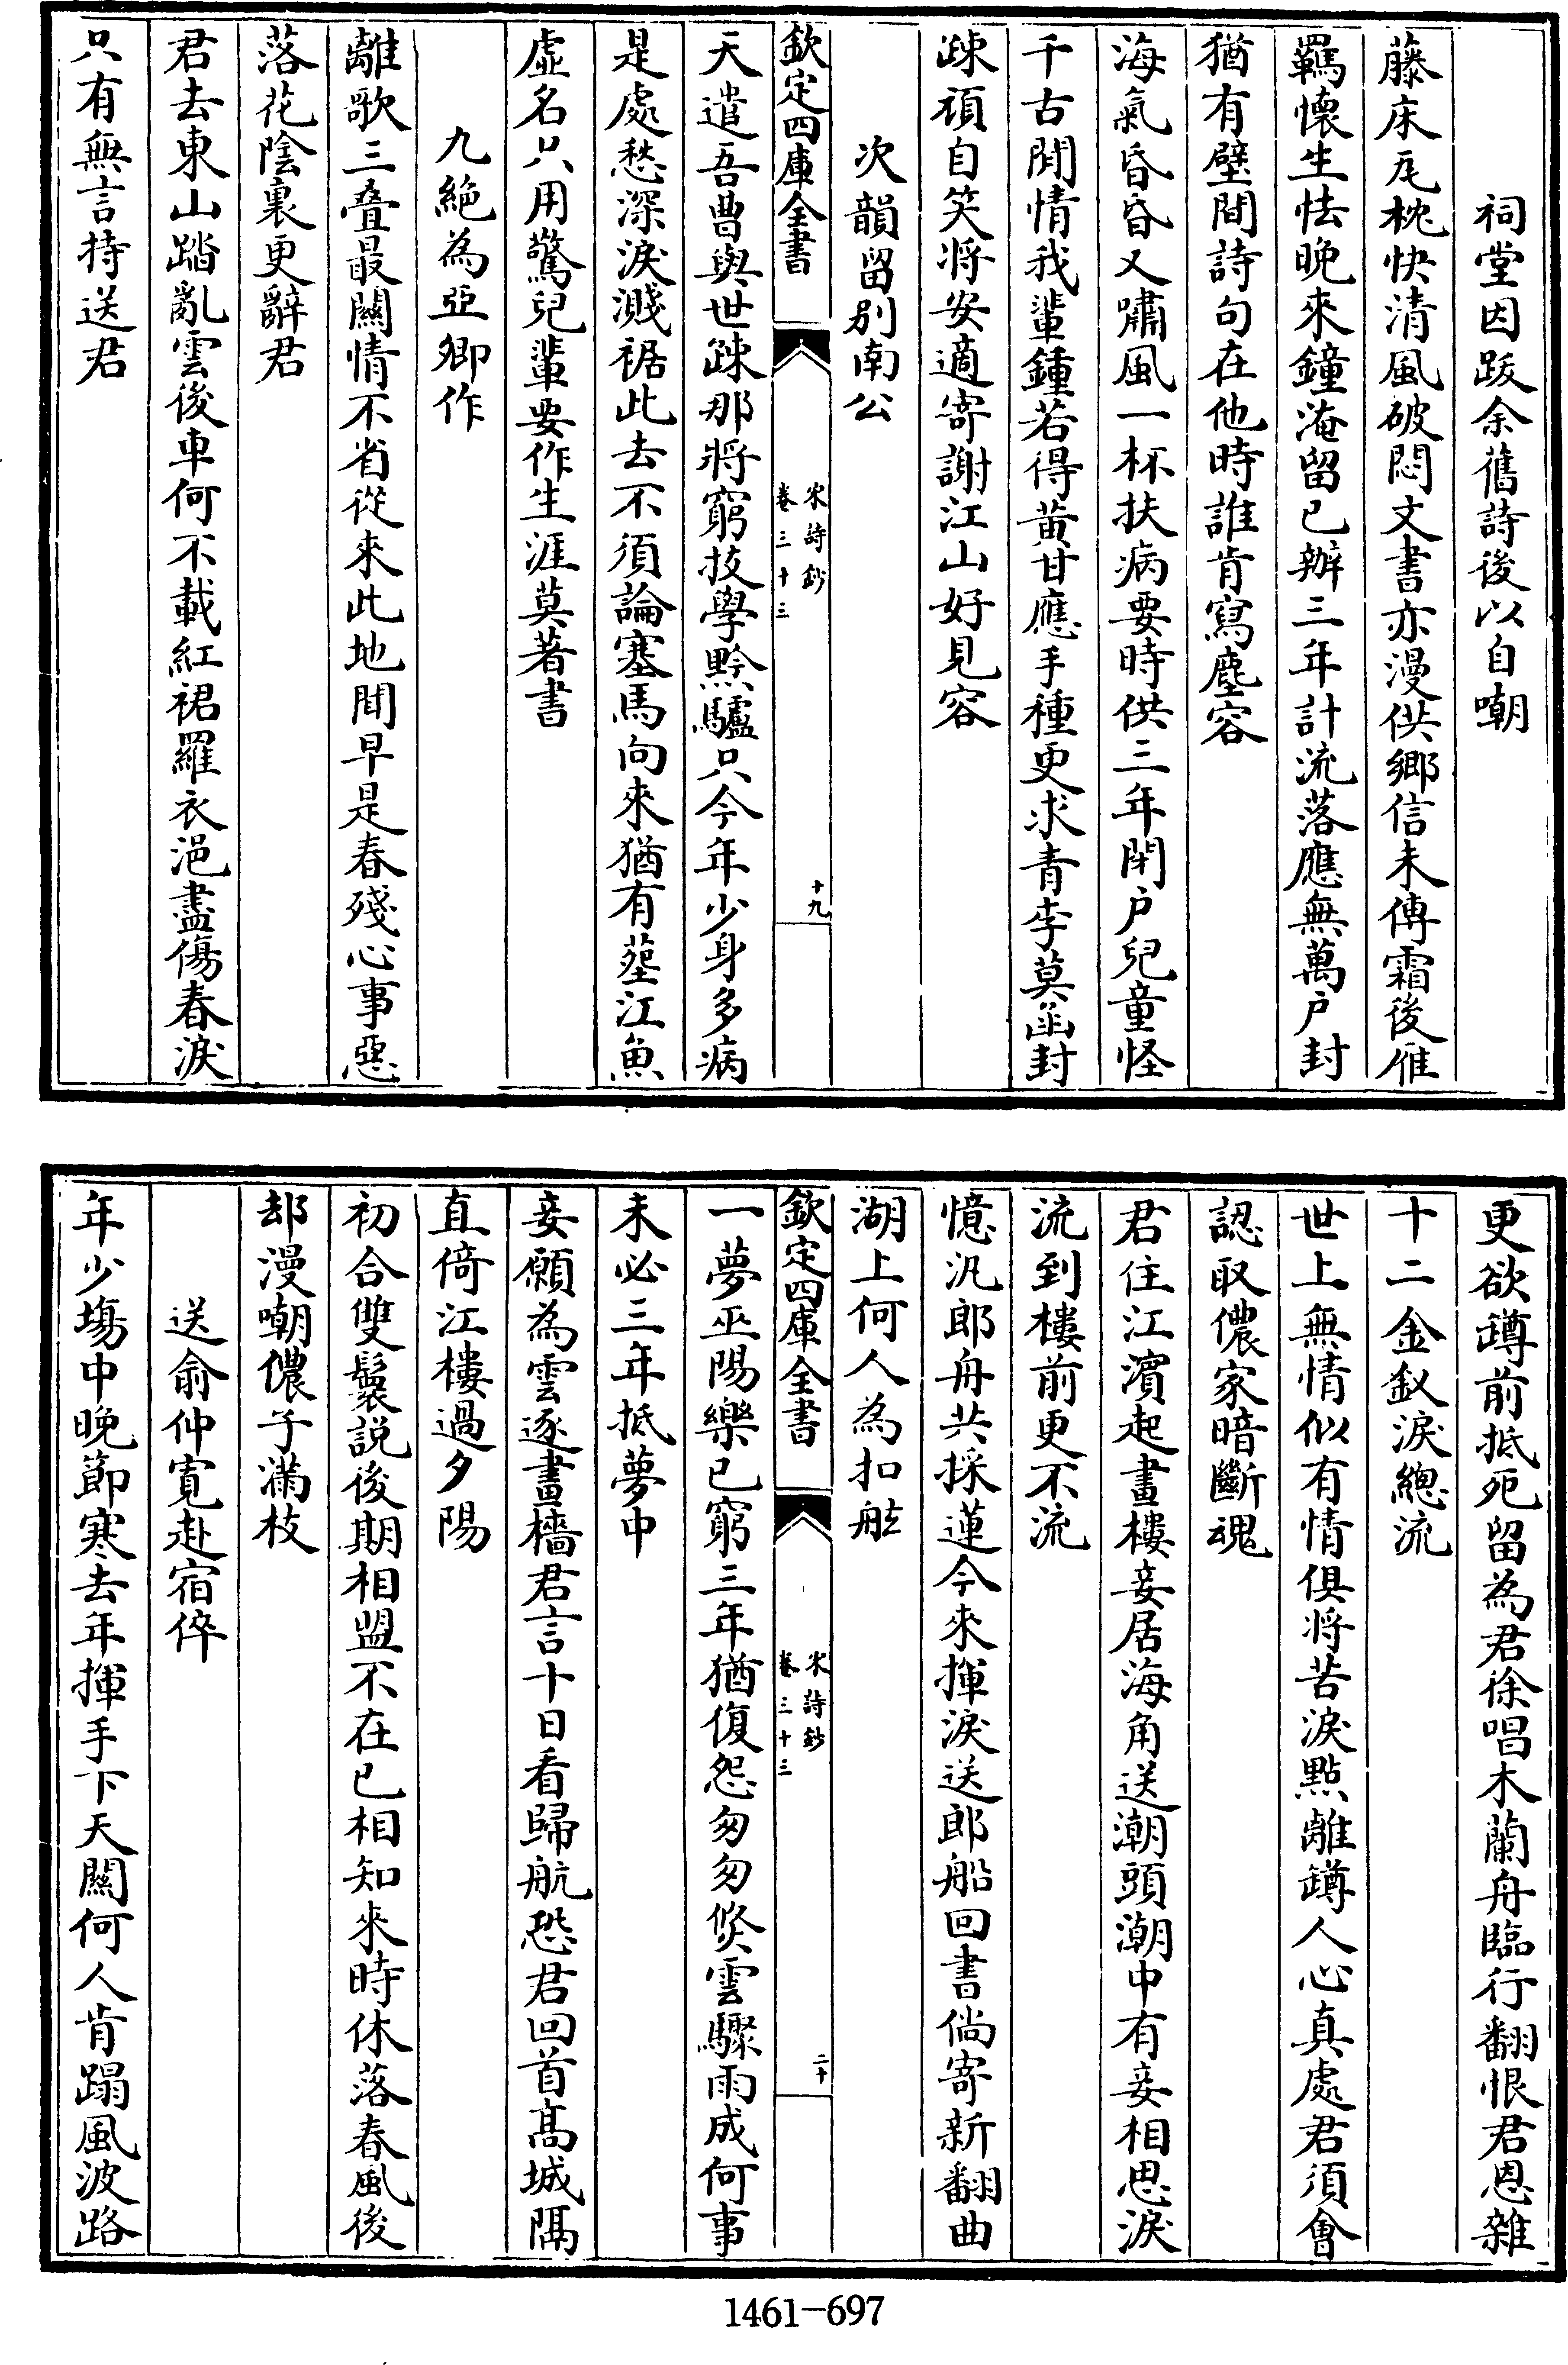 祠堂因跋余舊詩後以自嘲
藤床瓦枕快清風破悶文書亦漫供鄉信未傳霜後雁
羈懷生怯晚來鐘淹留已辦三年計流落應無萬户封
猶有壁間詩句在他時誰肯寫塵容
海氣昏昏又嘯風一杯扶病要時供三年閉户兒童怪
千古閒情我輩鍾若得黄甘應手種更求青李莫函封
疎頑自笑將安適寄謝江山好見容
次韻留别南公
欽定四庫全書
宋詩鈔
卷三十三
十九
天遣吾曹與世疎那將窮技學黔驢只今年少身多病
是處愁深淚濺裾此去不須論塞馬向來猶有塟江魚
虚名只用驚兒輩要作生涯莫著書
九絶為亞卿作
離歌三疊最關情不省從來此地聞早是春殘心事惡
落花陰裏更辭君
君去東山踏亂雲後車何不載紅裙羅衣浥盡傷春淚
只有無言持送君
更欲罇前抵死留為君徐唱木蘭舟臨行翻恨君恩雜
十二金釵淚總流
世上無情似有情俱將苦淚點離罇人心真處君須會
認取儂家暗斷魂
君住江濱起畫樓妾居海角送潮頭潮中有妾相思淚
流到樓前更不流
憶汎郎舟共採蓮今來揮淚送郎船回書倘寄新翻曲
湖上何人為扣舷
欽定四庫全書
宋詩鈔
卷三十三
二十
一夢巫陽樂已窮三年猶復怨匆匆倐雲驟雨成何事
未必三年抵夢中
妾願為雲逐畫檣君言十日看歸航恐君回首髙城隔
直倚江樓過夕陽
初合雙鬟説後期相盟不在已相知來時休落春風後
却漫嘲儂子滿枝
送俞仲寛赴宿倅
年少塲中晚節寒去年揮手下天關何人肯蹋風波路
1461-697